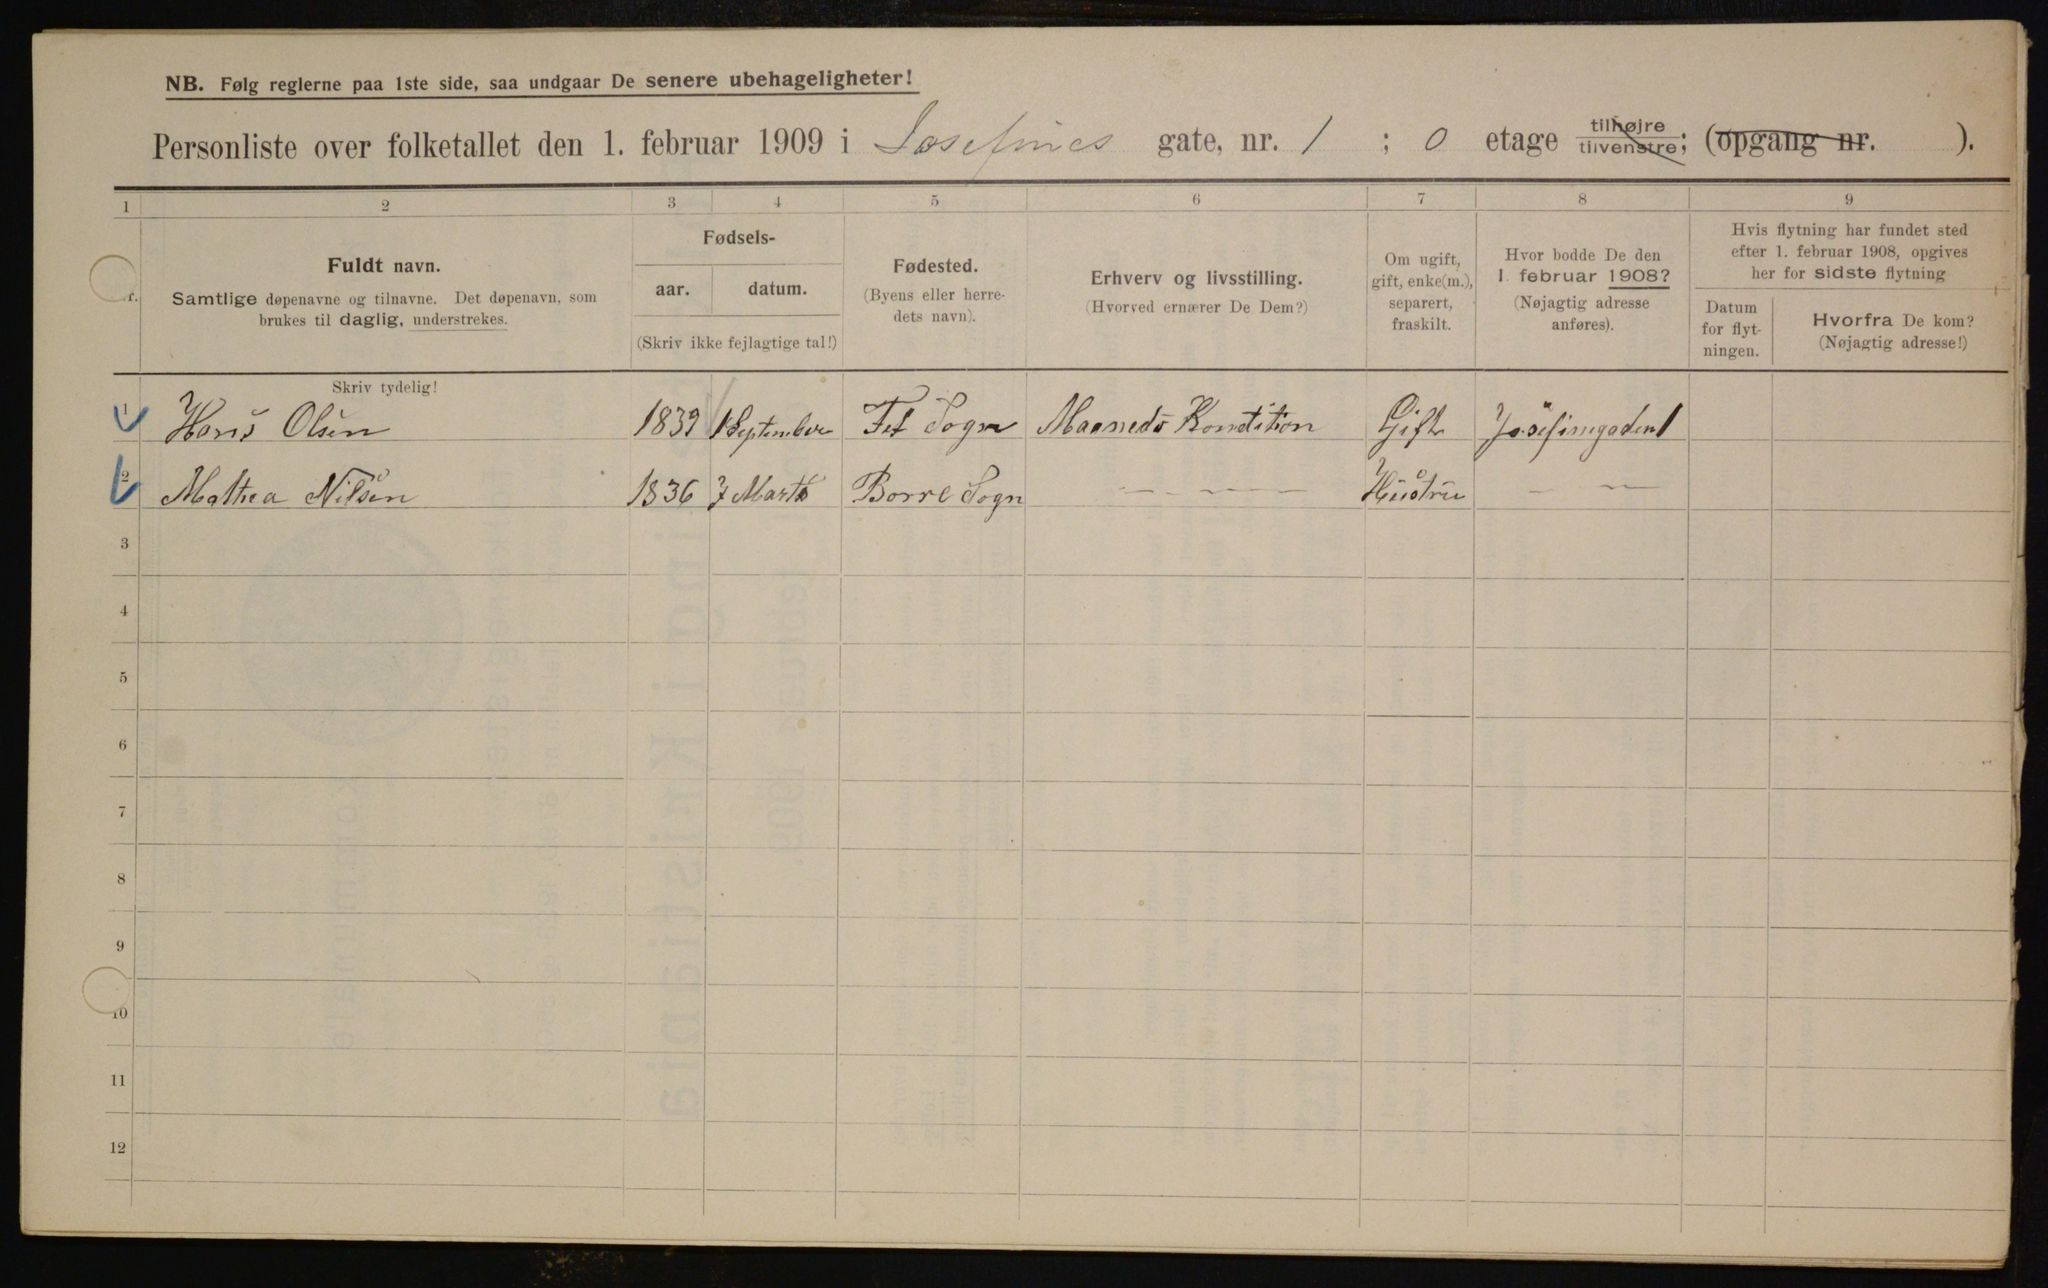 NB. Følg reglerne paa 1ste side, saa undgaar De senere ubehageligheter!
Personliste over folketallet den 1. februar 1909 i Josefines gate, nr. 1 ; 0 etage tilhøjre tilvenstre; (opgang nr. ).
1 2 3 4 5 6 7 8 9
Fuldt navn.
Samtlige døpenavne og tilnavne. Det døpenavn, som
brukes til daglig, understrekes.
Fødsels-
aar. datum.
(Skriv ikke fejlagtige tal!)
Fødested.
(Byens eller herre-
dets navn).
Erhverv og livsstilling.
(Hvorved ernærer De Dem?)
Om ugift,
gift, enke(m.),
separert,
fraskilt.
Hvor bodde De den
1. februar 1908?
(Nøjagtig adresse
anføres).
Hvis flytning har fundet sted
efter 1. februar 1908, opgives
her for sidste flytning
Datum
for flyt-
ningen.
Hvorfra De kom?
(Nøjagtig adresse!)
Skriv tydelig!
1 Hans Olsen 1839 1 September Fet Sogn Maaneds Kondition Gift Josefinegaden 1
2 Mathea Nilsen 1836 7 Marts Borre Sogn — - — Hustru — —
3
4
5
6
7
8
9
10
11
12